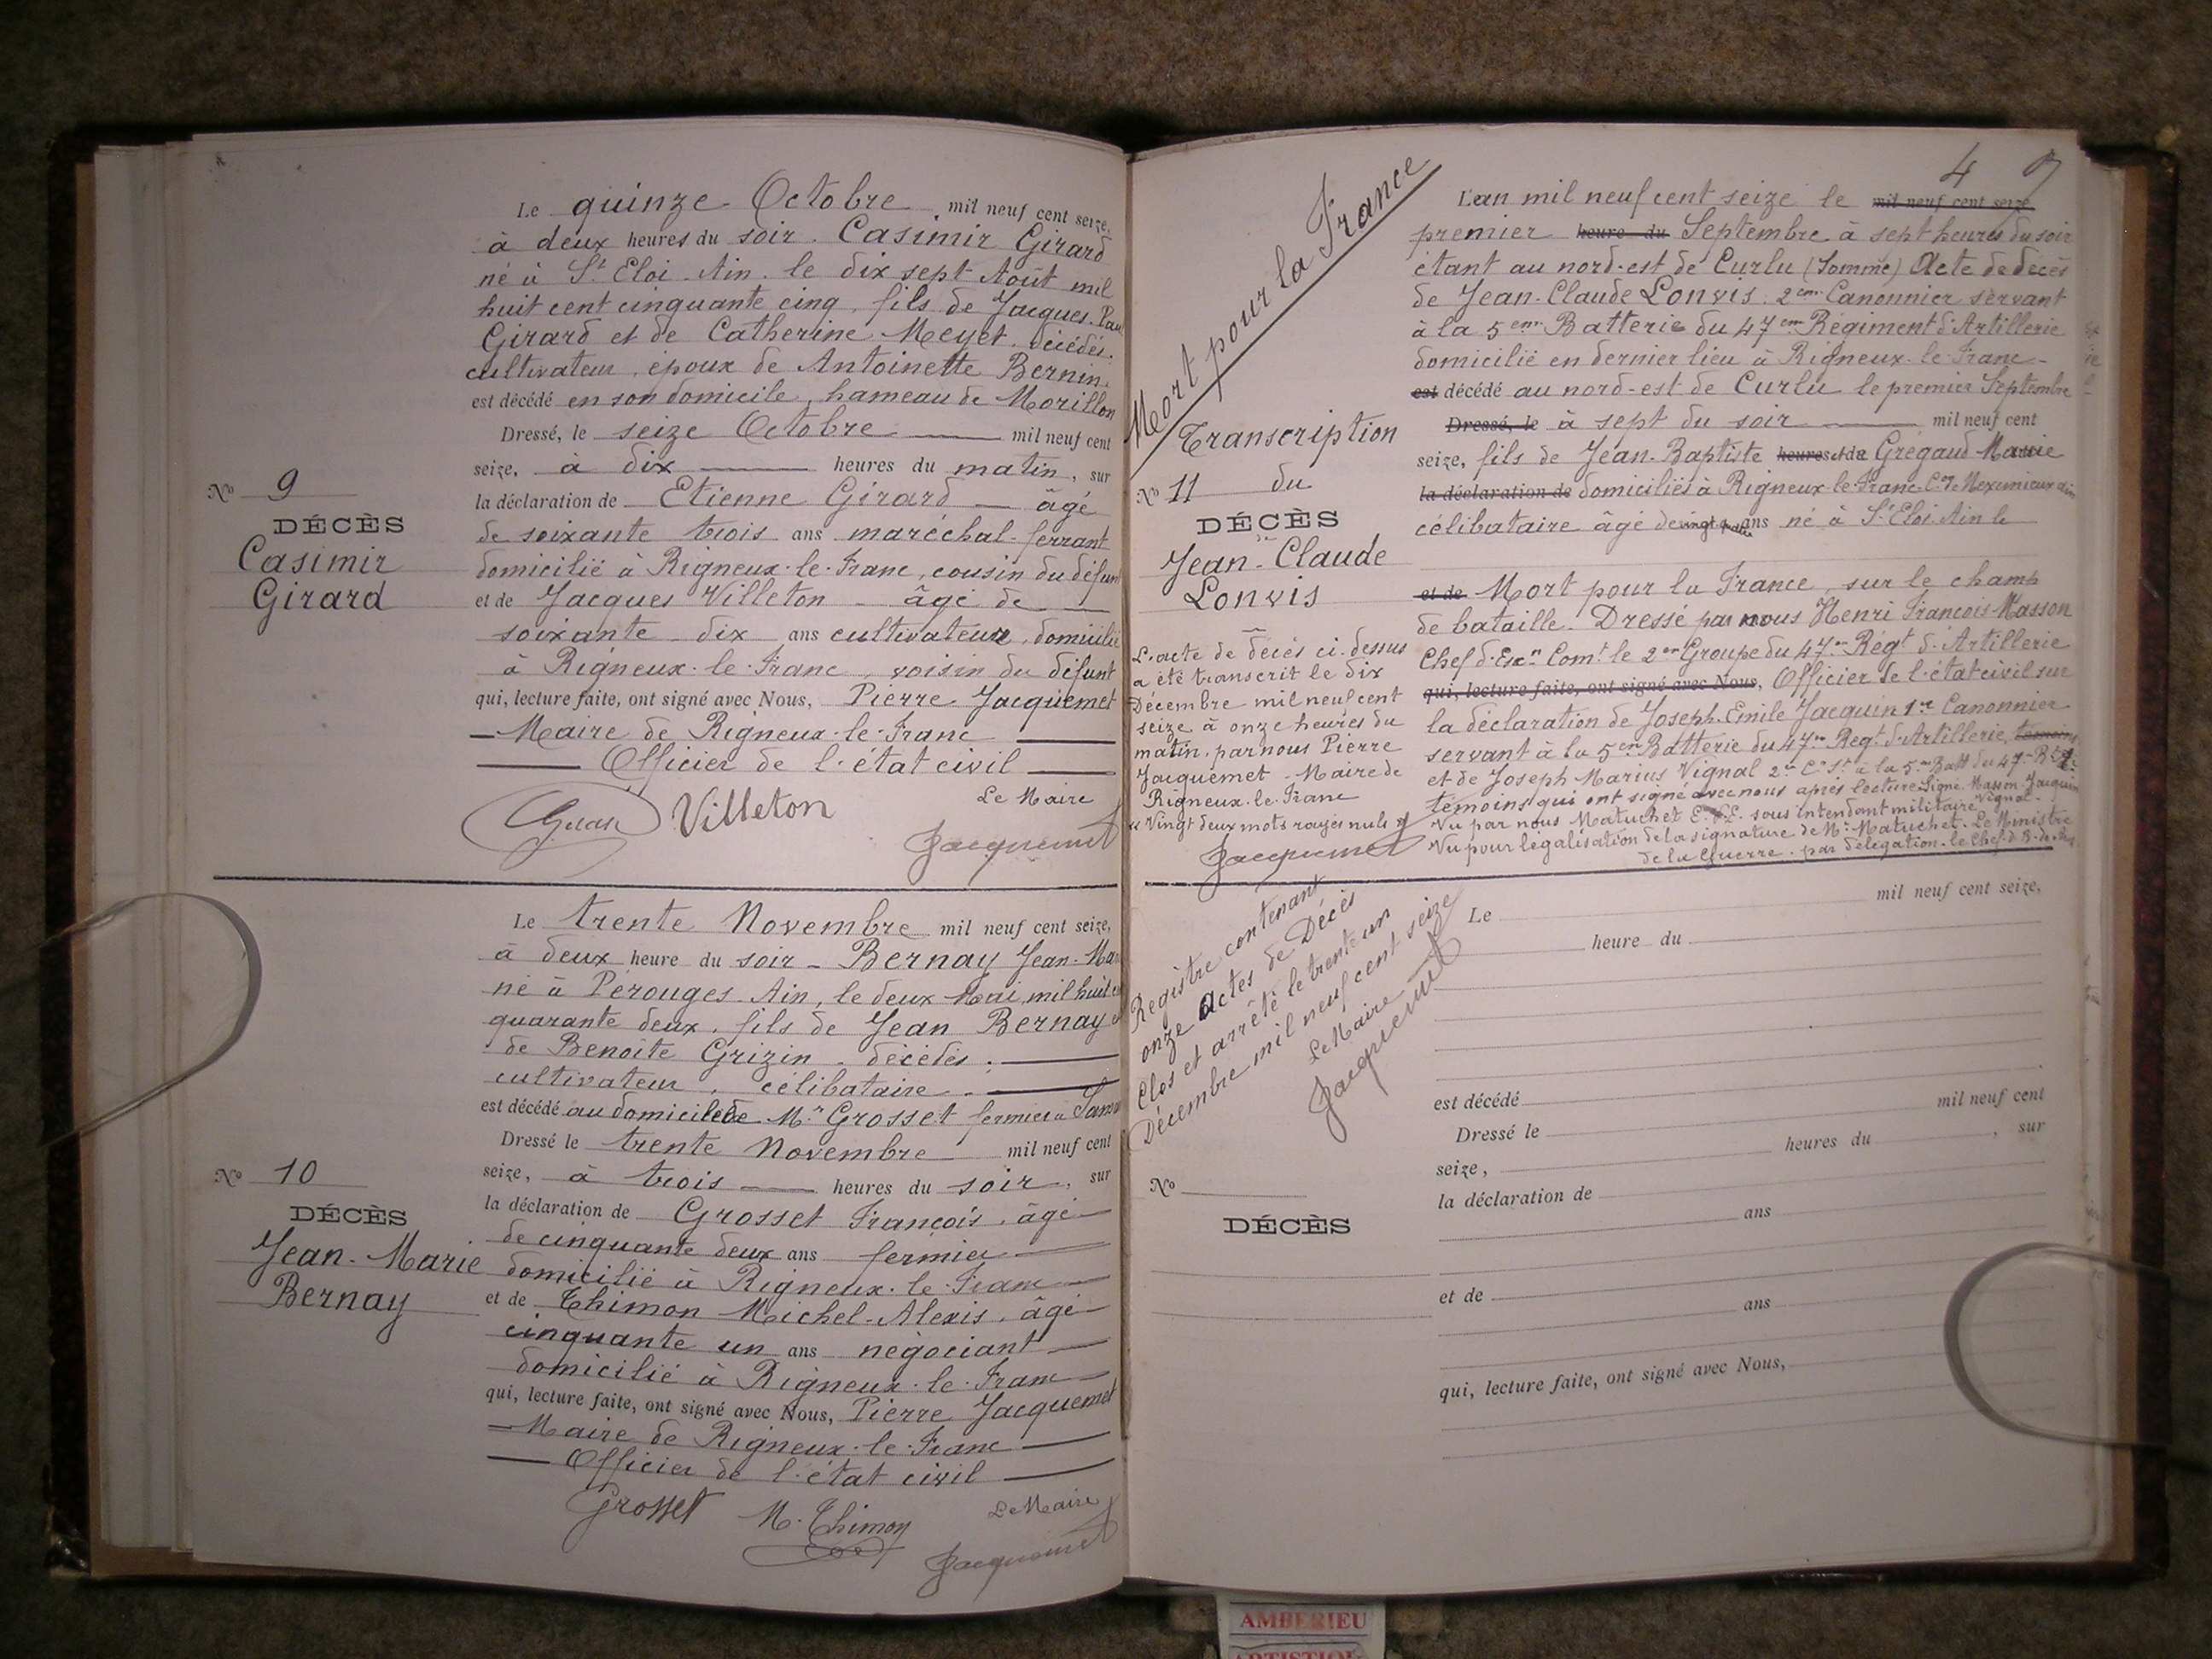 Le quinze Octobre mil neuf cent seize,
à deux heures du soir. Casimir Girard
né à St Eloi. Ain. le dix sept Août mil
huit cent cinquante cinq, fils de Jacques. Pau
Girard et de Catherine Meyet. décédés.
cultivateur, époux de Antoinette Bernin.
est décédé en son domicile, hameau de Morillon
Dressé, le seize Octobre mil neuf cent
seize, à dix heures du matin, sur
la déclaration de Etienne Girard âgé
de soixante trois ans maréchal-ferrant
domicilié à Rigneux-le-Franc, cousin du défunt
et de Jacques Villeton âgé de
soixante-dix ans cultivateur, domicilié
à Rigneux-le-Franc, voisin du défunt
qui, lecture faite, ont signé avec Nous, Pierre Jacquemet
Maire de Rigneux-le-Franc
Officier de l'état civil
Villeton
Le Maire
Jacquemet
No 9
DÉCÈS
Casimir
Girard
Le trente Novembre mil neuf cent seize,
à deux heure du soir - Bernay Jean-Mar
né à Pérouges. Ain, le deux Mai, mil huit c
quarante deux. fils de Jean Bernay
de Benoite Grizin. décédés.
cultivateur, célibataire
est décédé au domicile de Mr Grosset fermier à
Dressé le trente Novembre mil neuf cent
seize, à trois heures du soir, sur
la déclaration de Grosset François, âgé
de cinquante deux ans fermier
domicilié à Rigneux-le-Franc
et de Thimon Michel-Alexis, âgé
cinquante un ans négociant
domicilié à Rigneux-le-Franc
qui, lecture faite, ont signé avec Nous, Pierre Jacquemet
Maire de Rigneux-le-Franc
Officier de l'état civil
Grosset M. Thimon
Le Maire
Jacquemet
No 10
DÉCÈS
Jean-Marie
Bernay
4
Mort pour la France
Transcription
No 11 du
DÉCÈS
Jean-Claude
Lonvis
L'acte de décès ci-dessus
a été transcrit le dix
Décembre mil neuf cent
seize à onze heures du
matin, par nous Pierre
Jacquemet - Maire de
Rigneux-le-Franc
Vingt deux mots rayés nuls
Jacquemet
L'an mil neuf cent seize le mil neuf cent seize
premier heure du Septembre à sept heures du soir
étant au nord-est de Curlu (Somme) Acte de décès
de Jean-Claude Lonvis. 2em Canonnier servant
à la 5em Batterie du 47em Régiment d'Artillerie
domicilié en dernier lieu à Rigneux-le-Franc-
est décédé au nord-est de Curlu le premier Septembre
Dressé, le à sept du soir mil neuf cent
seize, fils de Jean-Baptiste heures et de Grégaud Marie
la déclaration de domiciliés à Rigneux-le-Franc Con de Meximieux Ain
célibataire âgé de vingt quatre ans né à St Eloi Ain le
et de Mort pour la France, sur le champ
de bataille. Dressé par nous Henri François Masson
Chef d'Escn Comt le 2em Groupe du 47em Régt d'Artillerie
qui, lecture faite, ont signé avec Nous, Officier de l'état civil sur
la déclaration de Joseph-Emile Jacquin 1er Canonnier
servant à la 5em Batterie du 47em Régt d'Artillerie, témoins
et de Joseph Marius Vignal 2em Cr St à la 5em Batt du 47em
témoins qui ont signé avec nous après lecture Signé. Masson. Jacquin
Vignal.
Vu par nous Matuchet sous intendant militaire
Vu pour légalisation de la signature de Mr Matuchet. Le Ministre
de la Guerre. par délégation. le Chef. d. B.
Registre contenant
onze Actes de Décès
Clos et arrêté le trente un
Décembre mil neuf cent seize
Le Maire
Jacquemet
Le mil neuf cent seize,
heure du
est décédé
Dressé le mil neuf cent
seize, heures du , sur
la déclaration de
ans
et de
ans
qui, lecture faite, ont signé avec Nous,
No
DÉCÈS
AMBERIEU